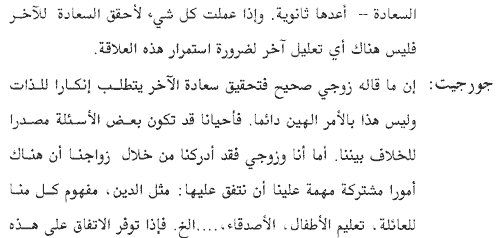 السعادة -- أعدها ثانوية. وإذا عملت كل شيء لأحقق السعادة للآخر
فليس هناك أي تعليل آخر لضرورة استمرار هذه العلاقة.
جورجيت: إن ما قاله زوجي صحيح فتحقيق سعادة الآخر يتطلب إنكارا للذات
وليس هذا بالأمر الهين دائما. فأحيانا قد تكون بعض الأسئلة مصدرا
للخلاف بيننا. أما أنا وزوجي فقد أدركنا من خلال زواجنا أن هناك
أمورا مشتركة مهمة علينا أن نتفق عليها: مثل الدين، مفهوم كل منا
للعائلة، تعليم الأطفال، الأصدقاء،....الخ. فإذا توفر الاتفاق على هذه